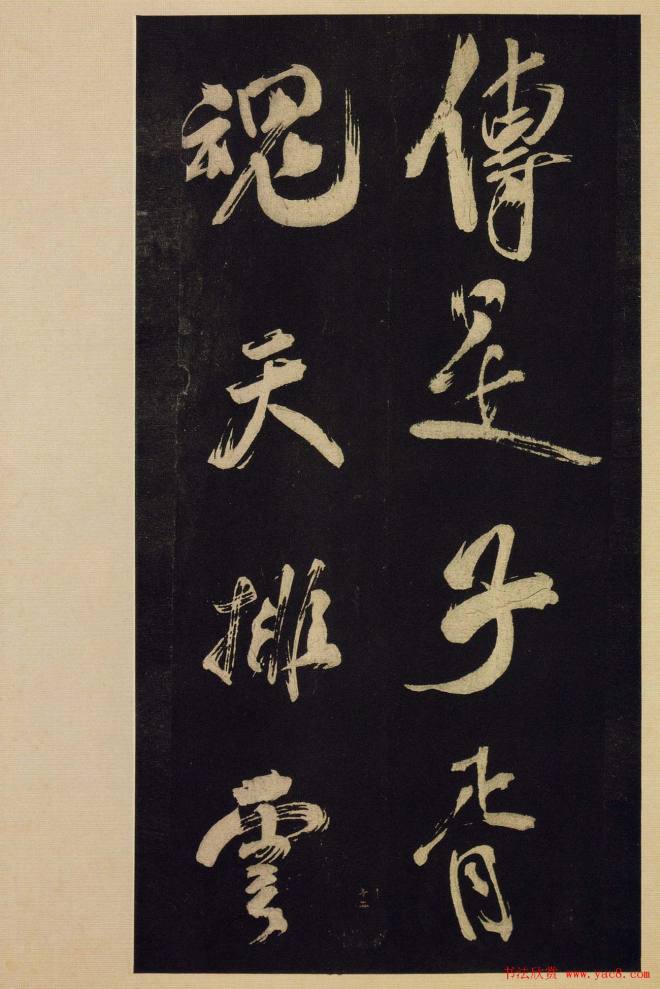 傳是子胥
魂天排雲
十二
书法欣赏 www.yac8.com